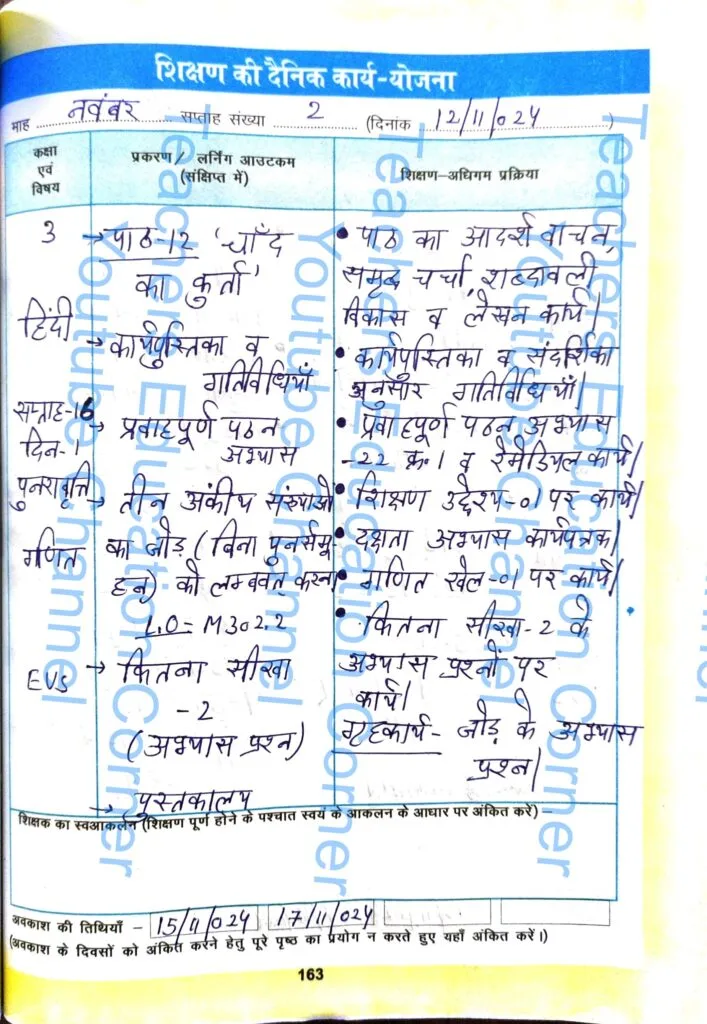 शिक्षण की दैनिक कार्य-योजना
माह नवंबर सप्ताह संख्या 2 (दिनांक 12/11/024)
कक्षा एवं विषय
प्रकरण / लर्निंग आउटकम (संक्षिप्त में)
शिक्षण-अधिगम प्रक्रिया
3
हिंदी
सप्ताह-16
दिन-1
पुनरावृत्ति
गणित
EVS
→ पाठ-12 'चाँद
का कुर्ता'
→ कार्यपुस्तिका व
गतिविधियाँ
→ प्रवाहपूर्ण पठन
अभ्यास
→ तीन अंकीय संख्याओं
का जोड़ (बिना पुनर्समू-
हन) को लम्बवत् करना
L.O = M302.2
→ कितना सीखा
-2
(अभ्यास प्रश्न)
→ पुस्तकालय
• पाठ का आदर्श वाचन,
समूह चर्चा, शब्दावली
विकास व लेखन कार्य।
• कार्यपुस्तिका व संदर्शिका
अनुसार गतिविधियाँ।
• प्रवाहपूर्ण पठन अभ्यास
-22 क्र.1 व रेमेडियल कार्य।
• शिक्षण उद्देश्य-01 पर कार्य।
• दक्षता अभ्यास कार्यपत्रक।
• गणित खेल-01 पर कार्य।
• कितना सीखा-2 के
अभ्यास प्रश्नों पर
कार्य।
गृहकार्य- जोड़ के अभ्यास
प्रश्न।
शिक्षक का स्वआकलन (शिक्षण पूर्ण होने के पश्चात स्वयं के आकलन के आधार पर अंकित करें) –
अवकाश की तिथियाँ – 15/11/024 17/11/024
(अवकाश के दिवसों को अंकित करने हेतु पूरे पृष्ठ का प्रयोग न करते हुए यहाँ अंकित करें।)
163
Teachers Education Corner
Youtube Channel
Teachers Education Corner
Youtube Channel
Teachers Education Corner
Youtube Channel